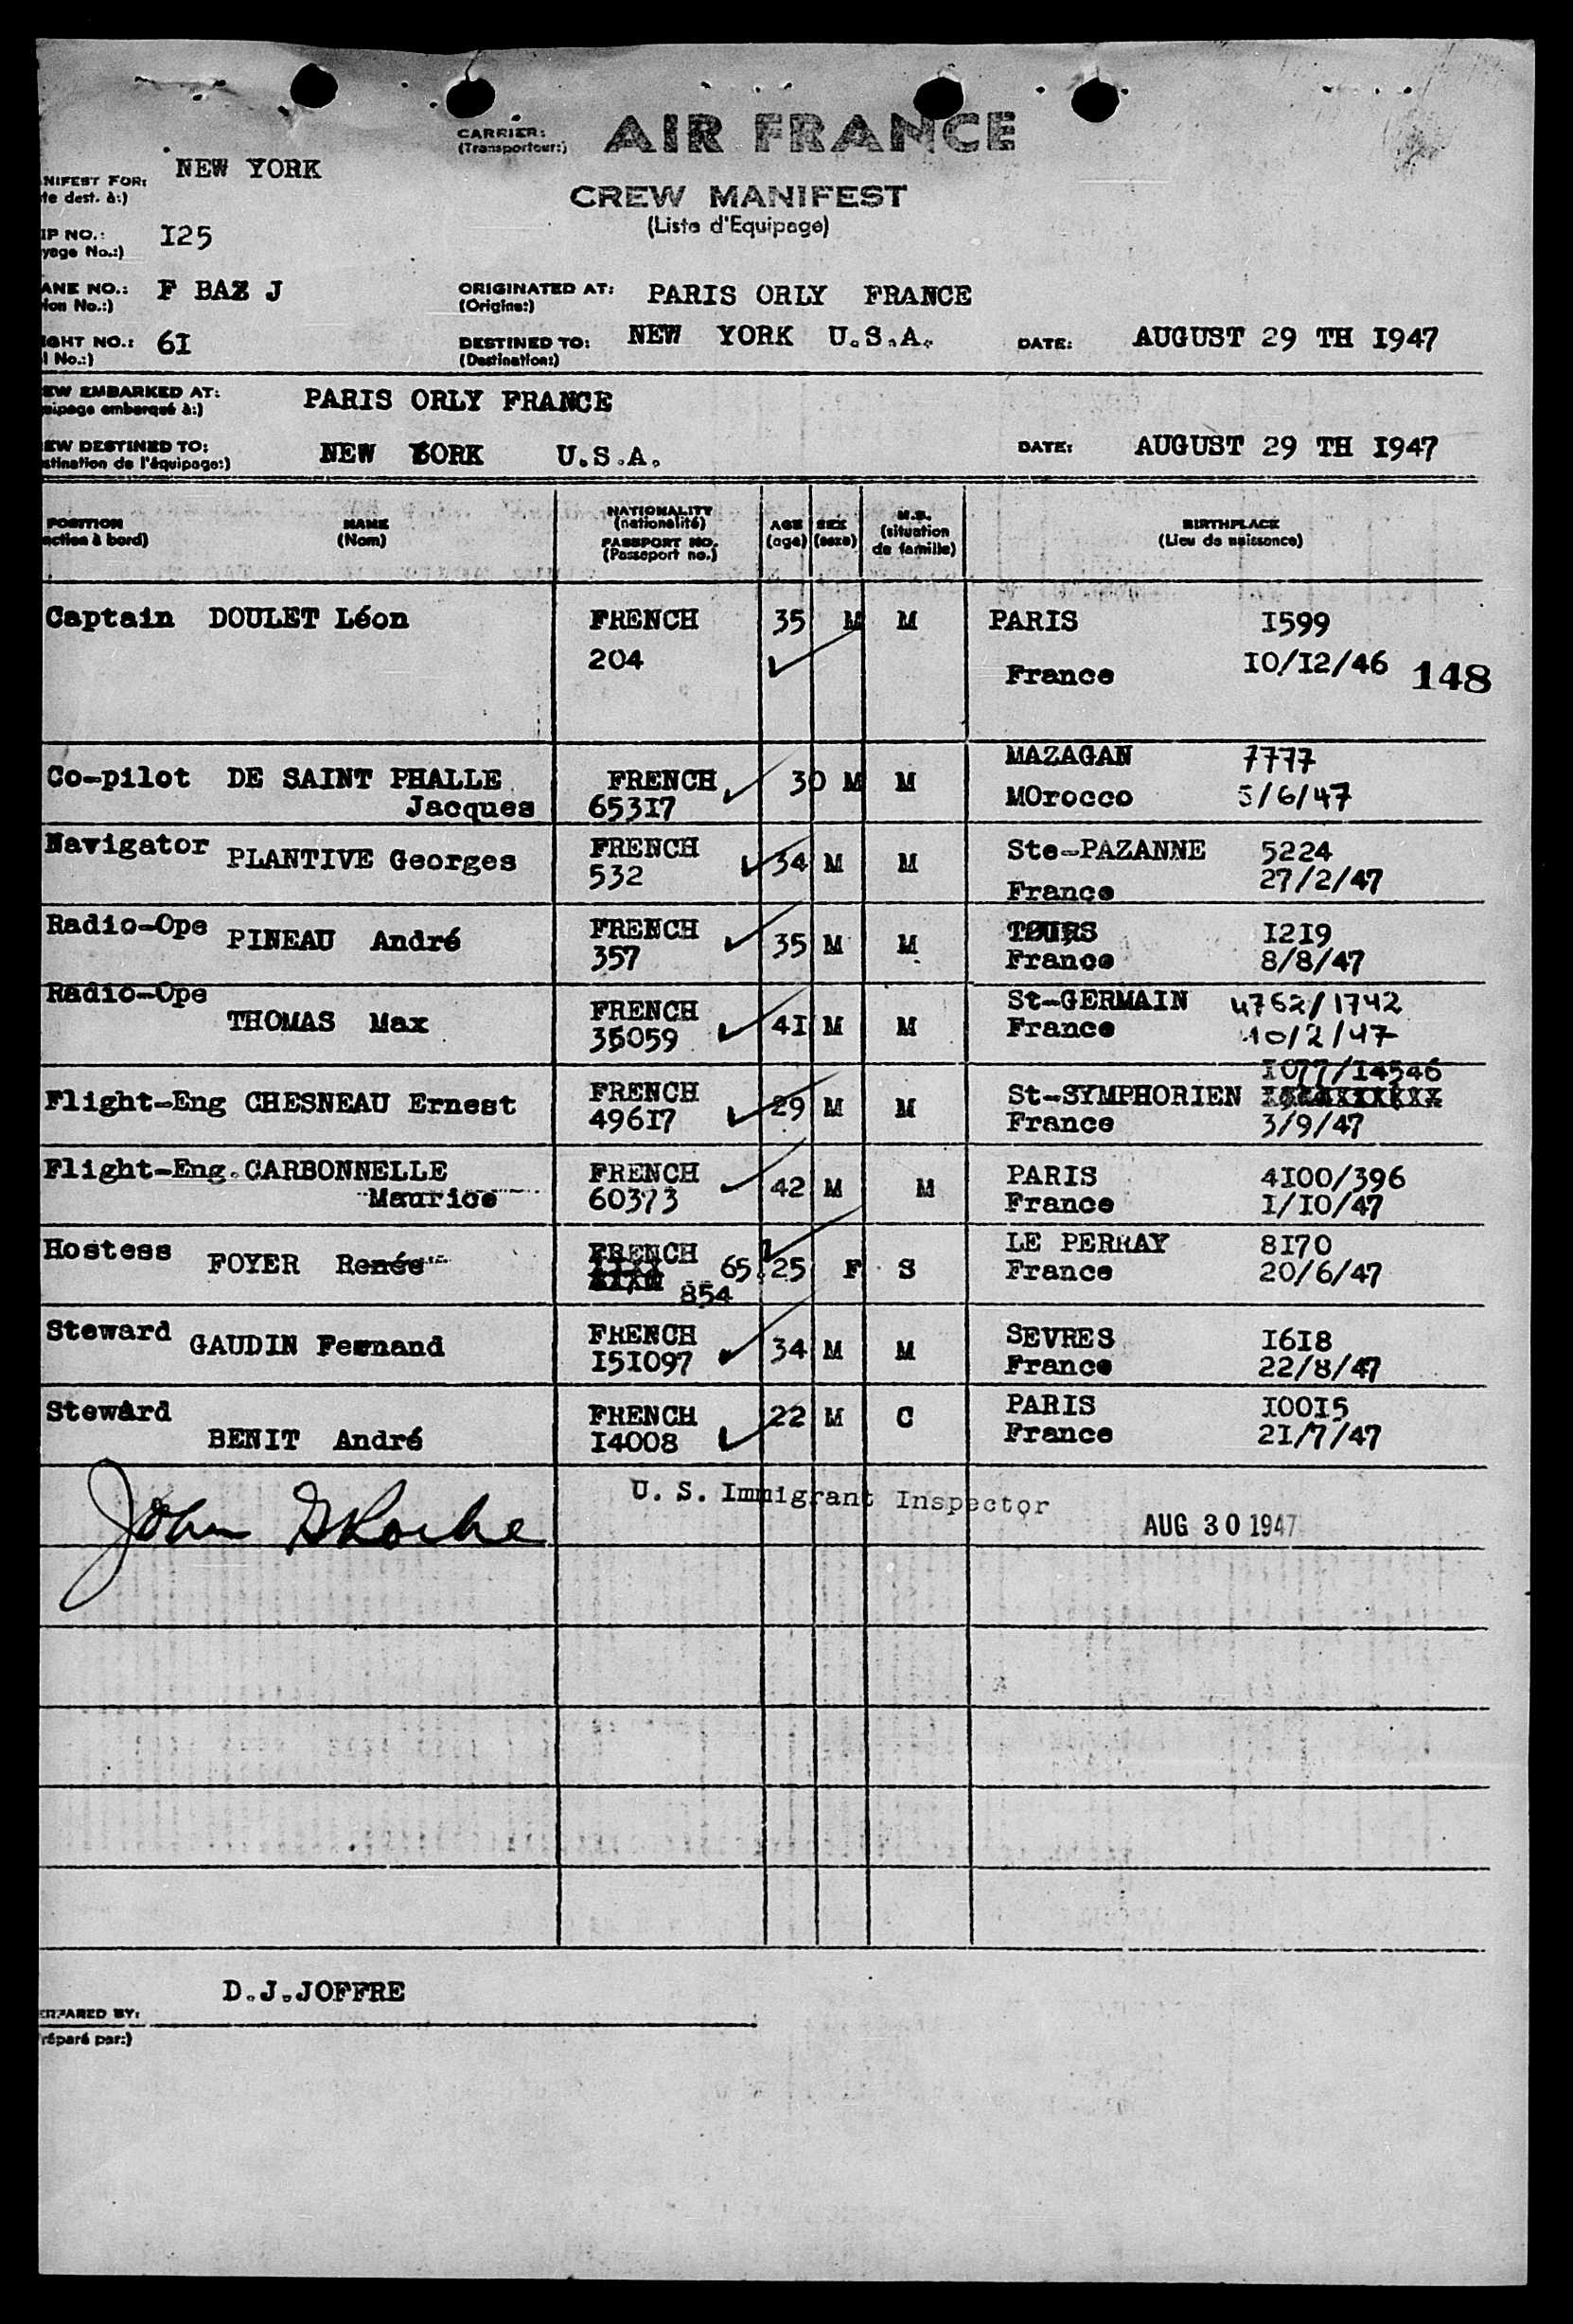 CARRIER: AIR FRANCE
(Transporteur:)
NIFEST FOR: NEW YORK
te dest. à:)
CREW MANIFEST
(Liste d'Equipage)
IP NO.: I25
yage No.:)
ANE NO.: F BAZ J
ion No.:)
ORIGINATED AT: PARIS ORLY FRANCE
(Origine:)
IGHT NO.: 6I
l No.:)
DESTINED TO: NEW YORK U.S.A.
(Destination:)
DATE: AUGUST 29 TH I947
EW EMBARKED AT: PARIS ORLY FRANCE
uipage embarqué à:)
EW DESTINED TO: NEW YORK U.S.A.
stination de l'équipage:)
DATE: AUGUST 29 TH I947
POSITION
nction à bord)
NAME
(Nom)
NATIONALITY
(nationalité)
PASSPORT NO.
(Passeport no.)
AGE
(age)
SEX
(sexe)
M.S.
(situation
de famille)
BIRTHPLACE
(Lieu de naissance)
Captain DOULET Léon FRENCH 35 M M PARIS I599
204 France I0/I2/46 148
Co-pilot DE SAINT PHALLE FRENCH 30 M M MAZAGAN 7777
Jacques 653I7 MOrocco 5/6/47
Navigator PLANTIVE Georges FRENCH 34 M M Ste-PAZANNE 5224
532 France 27/2/47
Radio-Ope PINEAU André FRENCH 35 M M TOURS I2I9
357 France 8/8/47
Radio-Ope THOMAS Max FRENCH 4I M M St-GERMAIN 4762/1742
35059 France 10/2/47
I077/I4546
Flight-Eng CHESNEAU Ernest FRENCH 29 M M St-SYMPHORIEN
496I7 France 3/9/47
Flight-Eng. CARBONNELLE FRENCH 42 M M PARIS 4I00/396
Maurice 60373 France I/I0/47
Hostess FOYER Renée FRENCH 65. 25 F S LE PERRAY 8I70
854 France 20/6/47
Steward GAUDIN Fernand FRENCH 34 M M SEVRES I6I8
I5I097 France 22/8/47
Steward BENIT André FRENCH 22 M C PARIS I00I5
I4008 France 2I/7/47
John G Roche U. S. Immigrant Inspector
AUG 30 1947
D.J.JOFFRE
EPARED BY:
réparé par:)